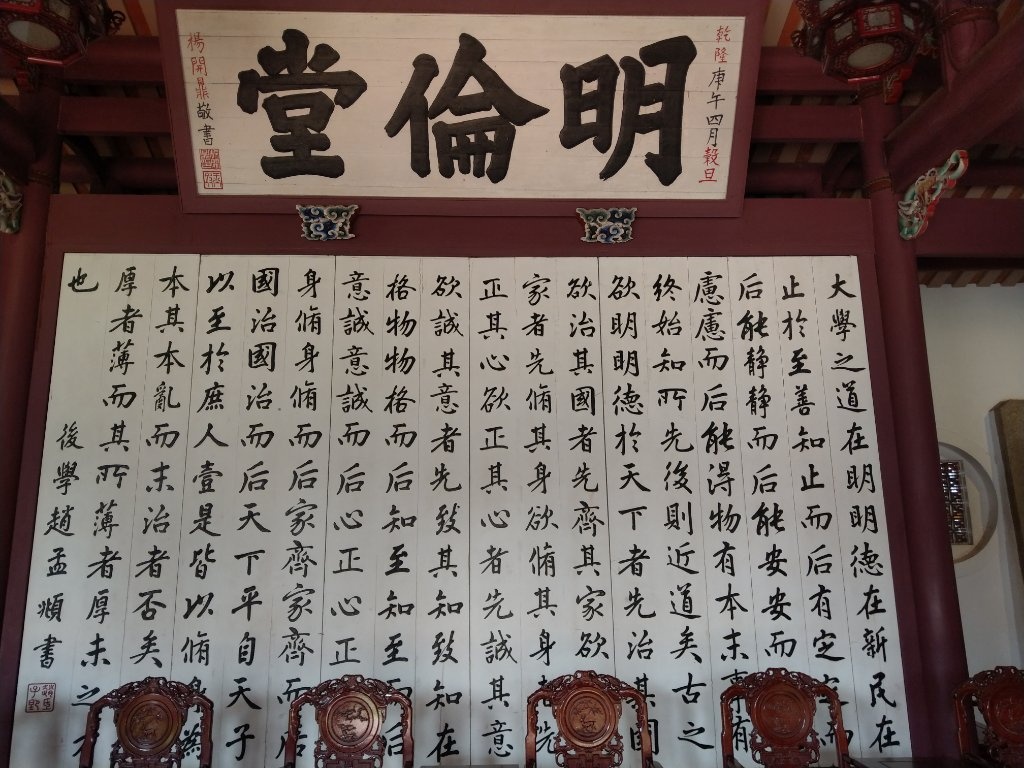 乾隆庚午四月穀旦
明倫堂
楊開鼎敬書
大學之道在明明德在新民在
止於至善知止而后有定定而
后能静静而后能安安而
慮慮而后能得物有本末事有
終始知所先後則近道矣古之
欲明明德於天下者先治其國
欲治其國者先齊其家欲
家者先脩其身欲脩其身者先
正其心欲正其心者先誠其意
欲誠其意者先致其知致知在
格物物格而后知至知至而后
意誠意誠而后心正心正
身脩身脩而后家齊家齊而后
國治國治而后天下平自天子
以至於庶人壹是皆以脩身為
本其本亂而末治者否矣
厚者薄而其所薄者厚未之有
也
後學趙孟頫書